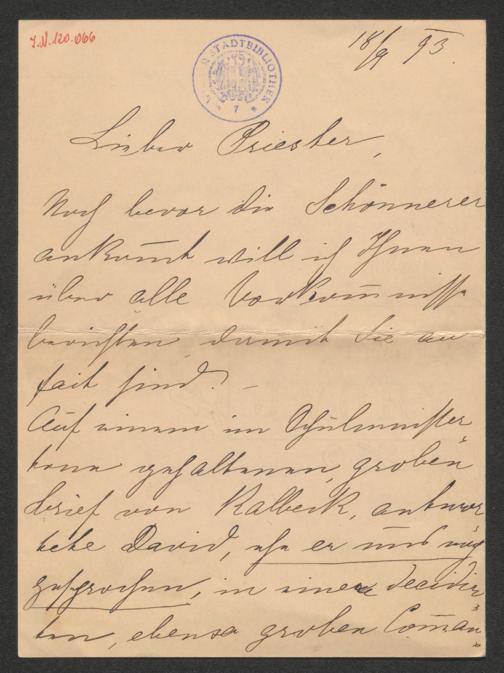 J.N. 120.066
STADTBIBLIOTHEK
7
18/9 93.
Lieber Priester,
Noch bevor die Schönnerer
ankom̅t will ich Ihnen
über alle Vorkom̅nisse
berichten damit Sie au
fait sind! –
Auf einem im Schulmeister
tone gehaltenen, groben
Brief von Kalbeck, antwor
tete David, ehe er uns noch
gesprochen, in einem decidir
ten, ebenso groben Com̅an